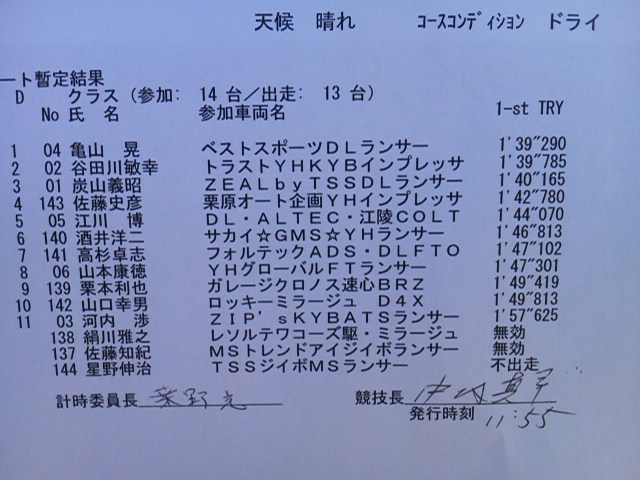 天候 晴れ コースコンディション ドライ
ート暫定結果
D クラス(参加: 14 台/出走: 13 台)
No 氏 名 参加車両名 1-st TRY
1 04 亀山 晃 ベストスポーツDLランサー 1'39"290
2 02 谷田川敏幸 トラストYHKYBインプレッサ 1'39"785
3 01 炭山義昭 ZEALbyTSSDLランサー 1'40"165
4 143 佐藤史彦 栗原オート企画YHインプレッサ 1'42"780
5 05 江川 博 DL・ALTEC・江陵COLT 1'44"070
6 140 酒井洋二 サカイ☆GMS☆YHランサー 1'46"813
7 141 高杉卓志 フォルテックADS・DLFTO 1'47"102
8 06 山本康徳 YHグローバルFTランサー 1'47"301
9 139 栗本利也 ガレージクロノス速心BRZ 1'49"419
10 142 山口幸男 ロッキーミラージュ D4X 1'49"813
11 03 河内 渉 ZIP'sKYBATSランサー 1'57"625
138 絹川雅之 レソルテワコーズ駆・ミラージュ 無効
137 佐藤知紀 MSトレンドアイジイボランサー 無効
144 星野伸治 TSSジイボMSランサー 不出走
計時委員長 競技長
発行時刻 11:55